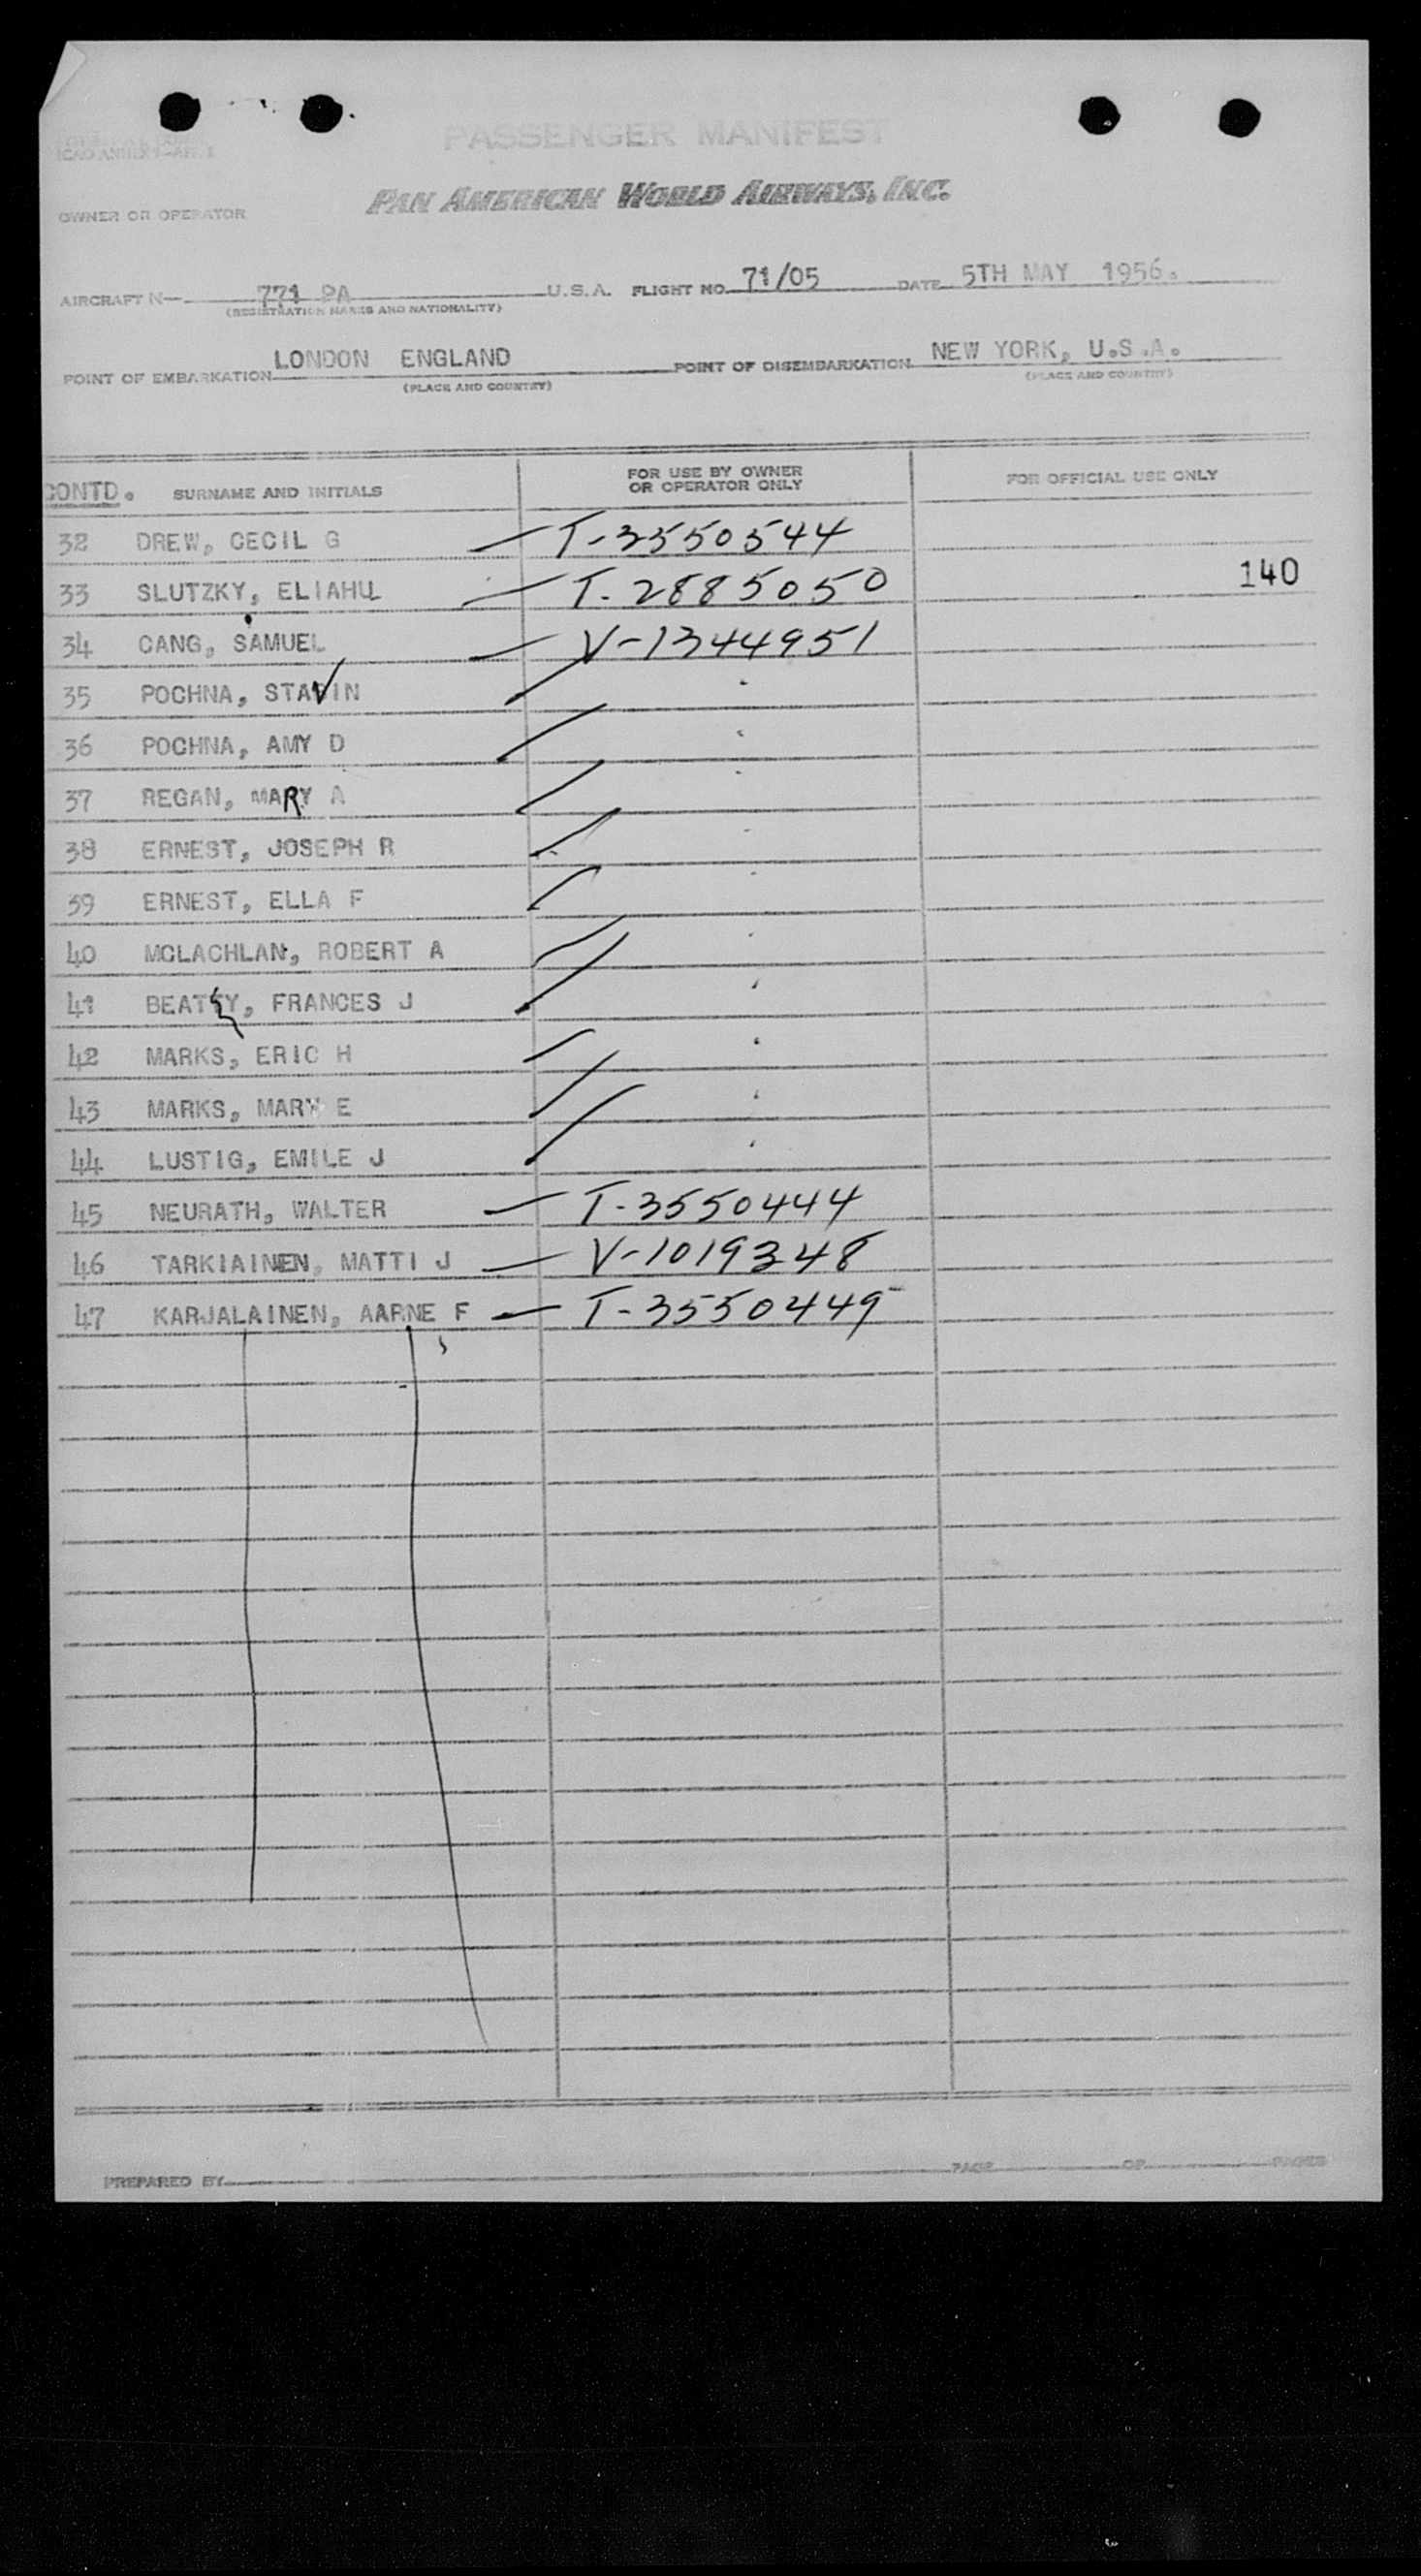 PASSENGER MANIFEST
PAN AMERICAN WORLD AIRWAYS, INC.
OWNER OR OPERATOR
AIRCRAFT N— 771 PA U.S.A. FLIGHT NO. 71/05 DATE 5TH MAY 1956.
(REGISTRATION MARKS AND NATIONALITY)
POINT OF EMBARKATION LONDON ENGLAND POINT OF DISEMBARKATION NEW YORK, U.S.A.
(PLACE AND COUNTRY) (PLACE AND COUNTRY)
CONTD. SURNAME AND INITIALS FOR USE BY OWNER OR OPERATOR ONLY FOR OFFICIAL USE ONLY
32 DREW, CECIL G T-3550544
33 SLUTZKY, ELIAHU T-2885050 140
34 CANG, SAMUEL V-1344951
35 POCHNA, STAVIN
36 POCHNA, AMY D
37 REGAN, MARY A
38 ERNEST, JOSEPH R
39 ERNEST, ELLA F
40 MCLACHLAN, ROBERT A
41 FRANCES J
42 MARKS, ERIC H
43 MARKS, MARY E
44 LUSTIG, EMILE J
45 NEURATH, WALTER T-3550444
46 TARKIAINEN, MATTI J V-1019348
47 KARJALAINEN, AARNE F T-3550449
PREPARED BY PAGE OF PAGES